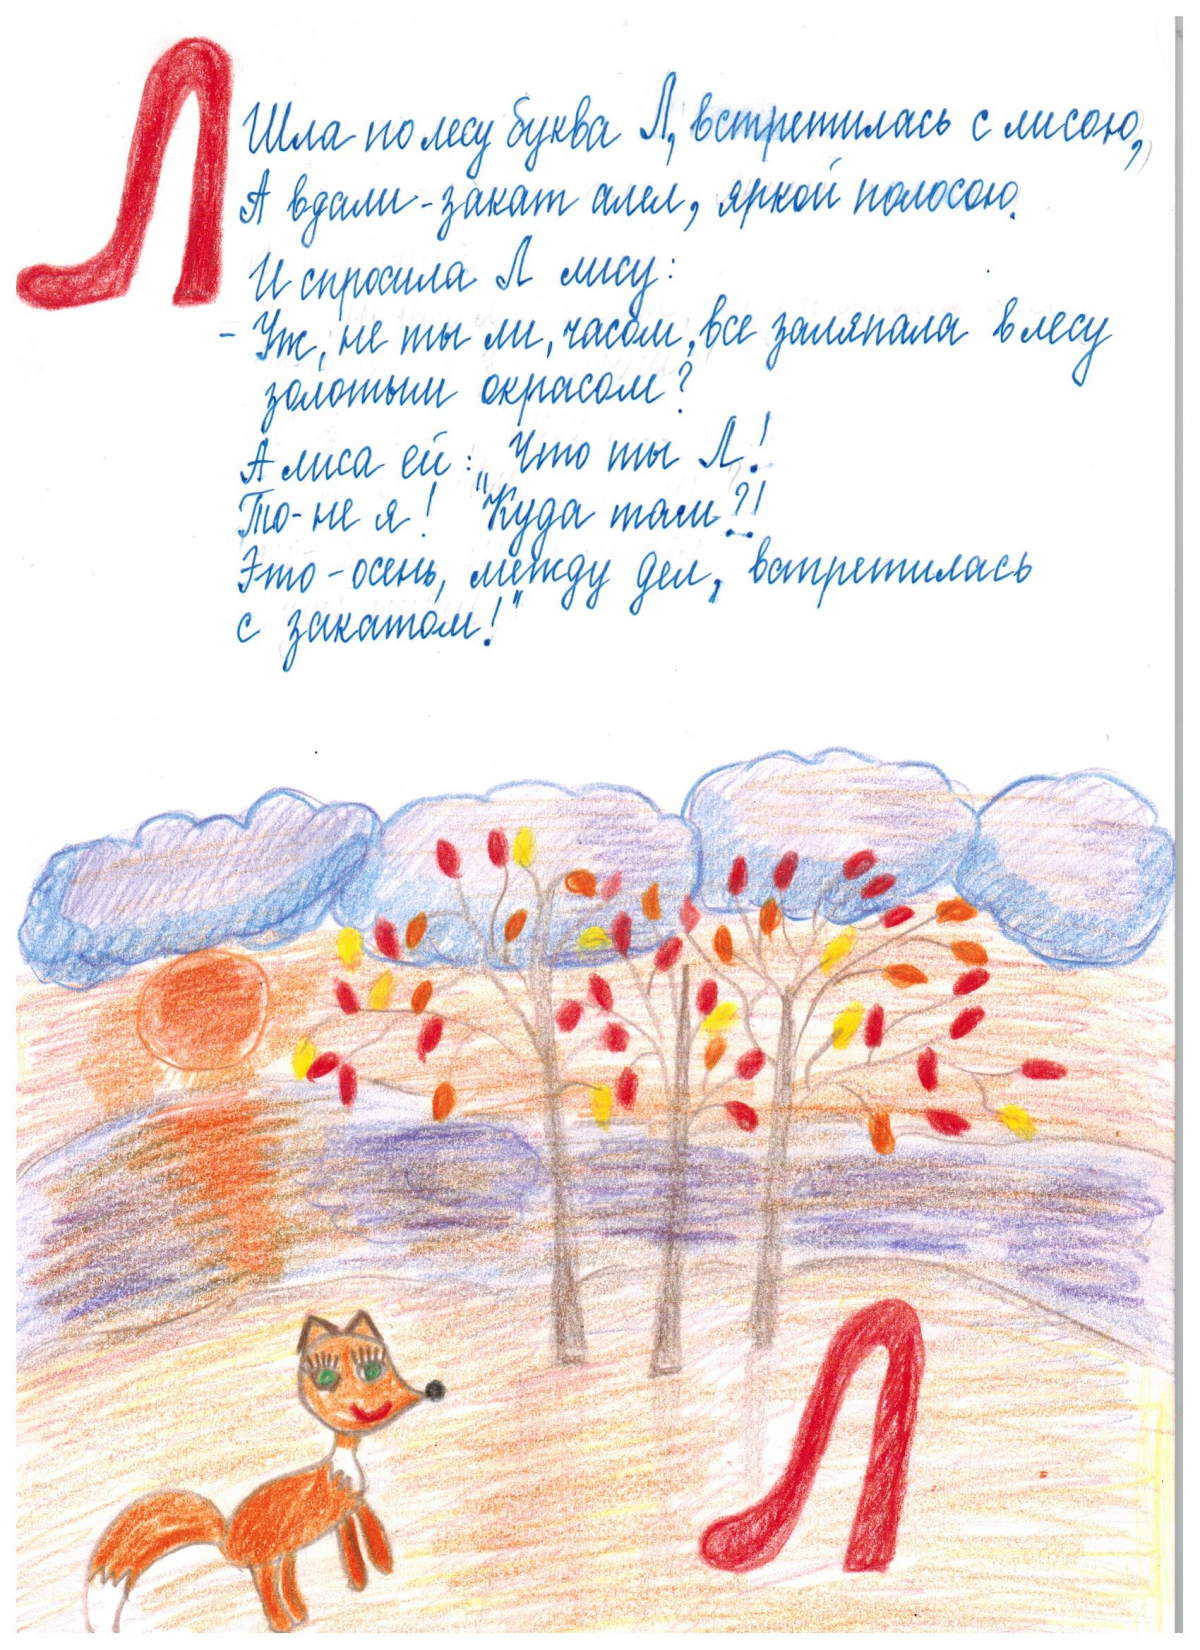 Л
Шла по лесу буква Л, встретилась с лисою,
А вдали - закат алел, яркой полосою.
И спросила Л лису:
- Уж, не ты ли, часом, все заляпала в лесу
золотым окрасом?
А лиса ей: „Что ты Л!
То-не я! "Куда там?!
Это-осень, между дел, встретилась
с закатом!"
Л